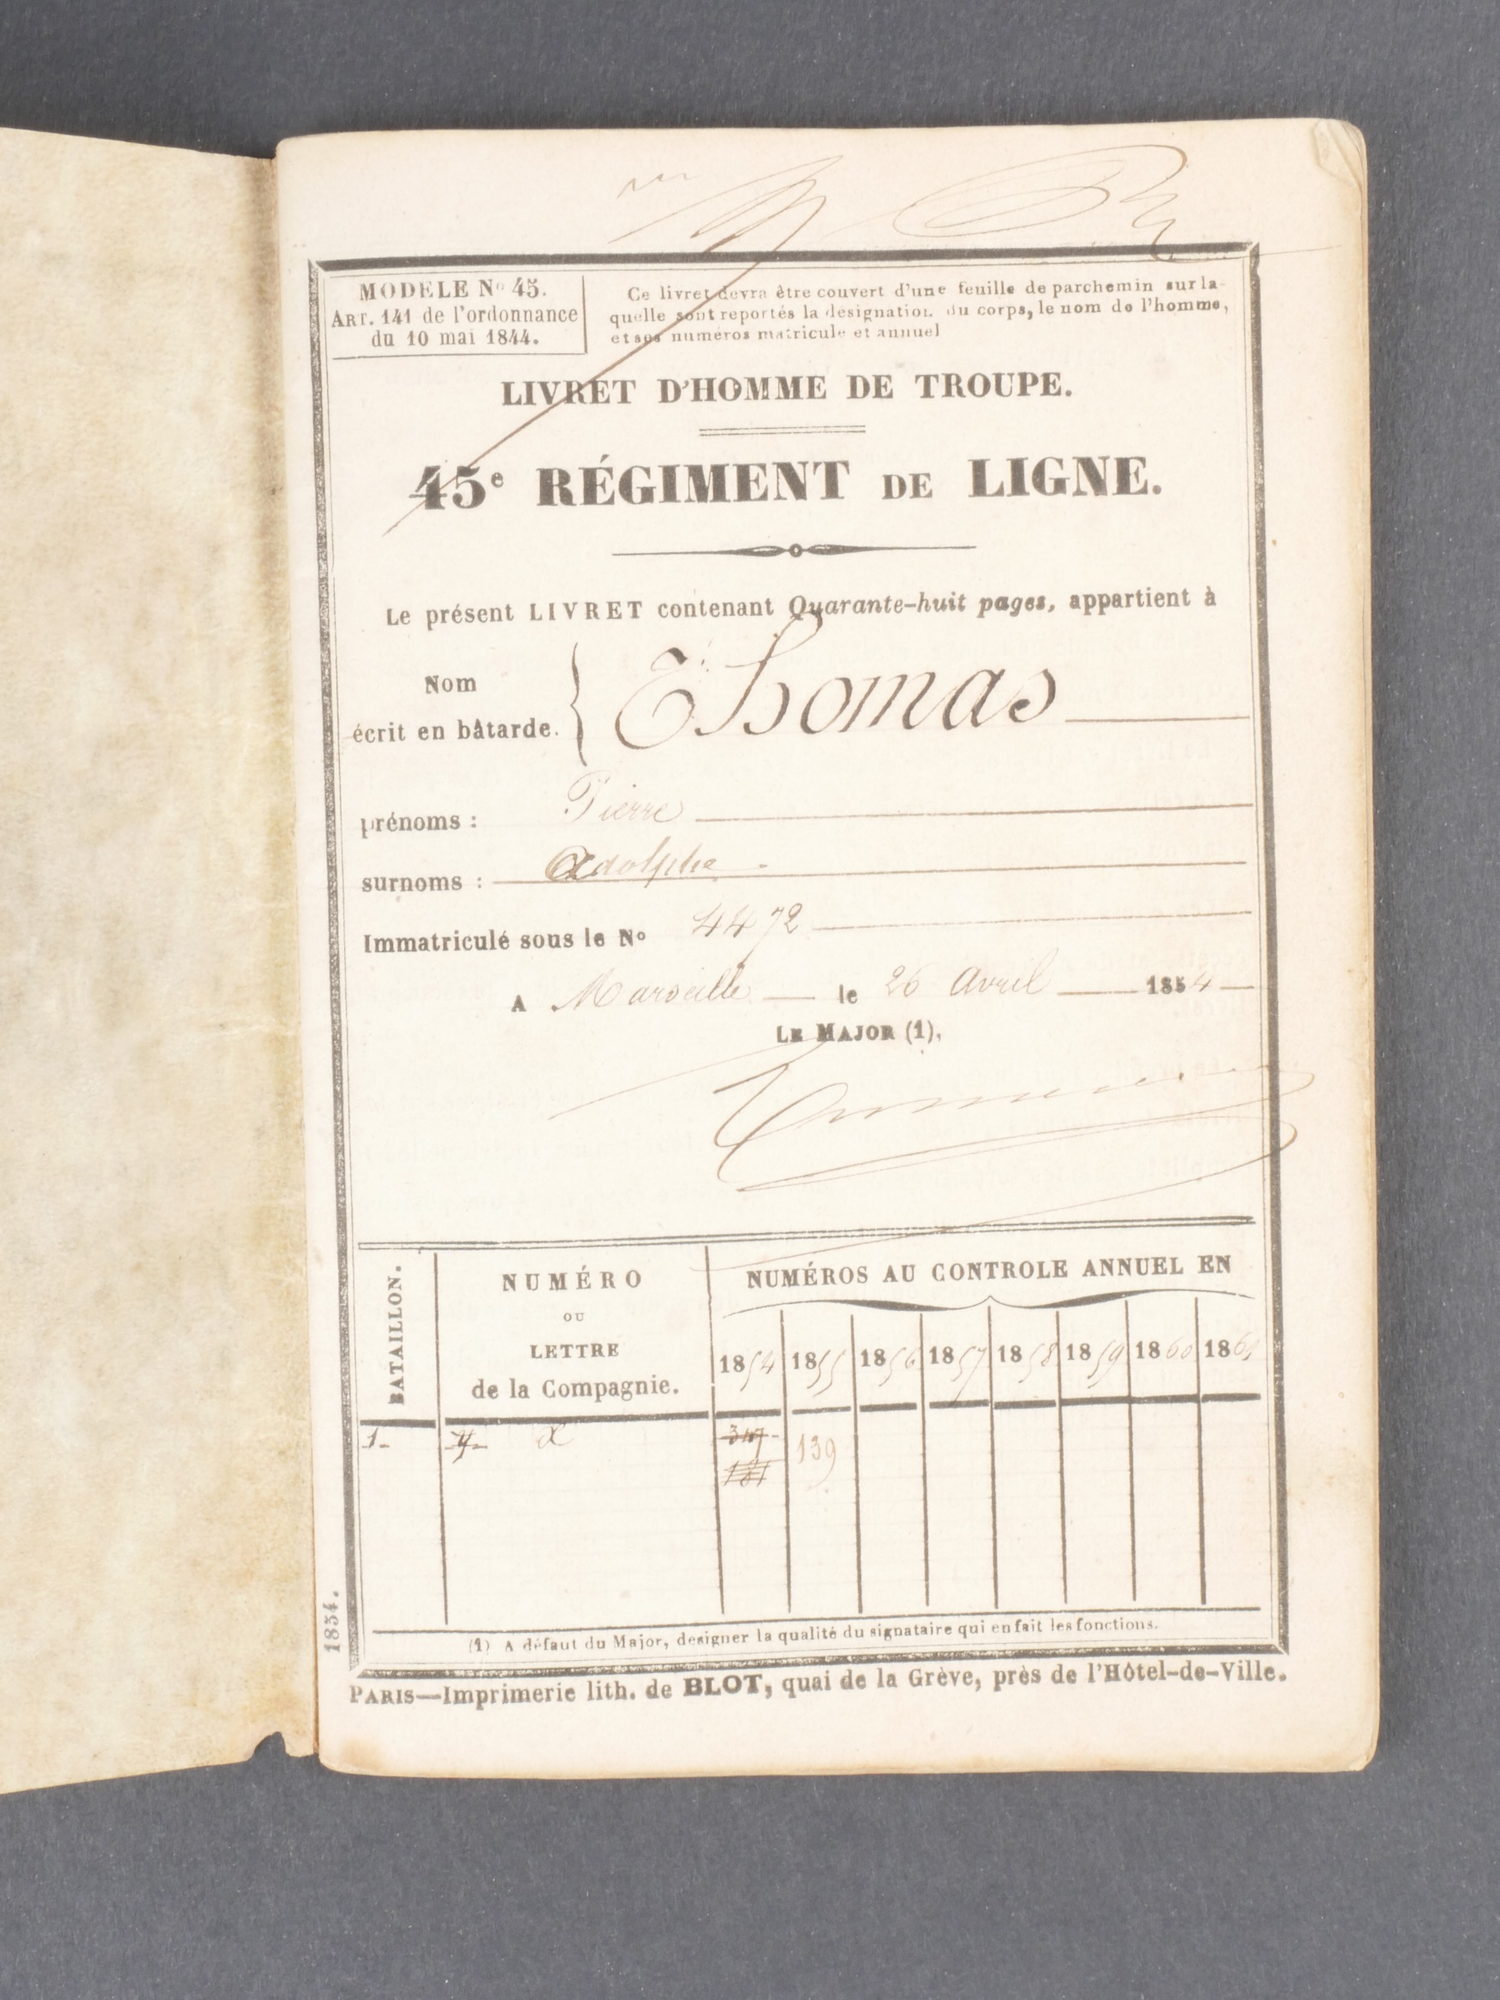 MODELE No 45.
ART. 141 de l'ordonnance
du 10 mai 1844.
Ce livret devra être couvert d'une feuille de parchemin sur la-
quelle sont reportés la designation du corps, le nom de l'homme,
et ses numéros matricule et annuel
LIVRET D'HOMME DE TROUPE.
45e RÉGIMENT DE LIGNE.
Le présent LIVRET contenant Quarante-huit pages, appartient à
Nom
écrit en bâtarde. { Thomas
prénoms : Pierre
surnoms : Adolphe
Immatriculé sous le No 4472
A Marseille le 26 Avril 1854
LE MAJOR (1),
BATAILLON.
NUMÉRO
OU
LETTRE
de la Compagnie.
NUMÉROS AU CONTROLE ANNUEL EN
1854 1855 1856 1857 1858 1859 1860 1861
1- 347 139
181
1854.
(1) A défaut du Major, designer la qualité du signataire qui en fait les fonctions.
PARIS—Imprimerie lith. de BLOT, quai de la Grève, près de l'Hôtel-de-Ville.